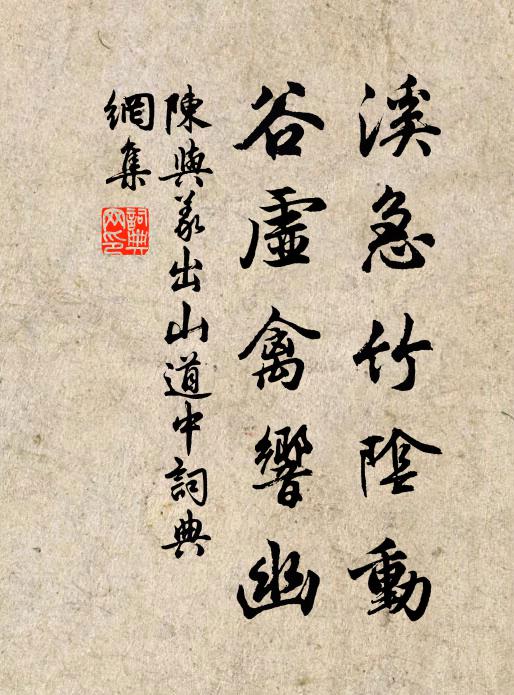 溪急竹陰動
谷虛禽響幽
陳與義出山道中詞典
網集
詞典
网印